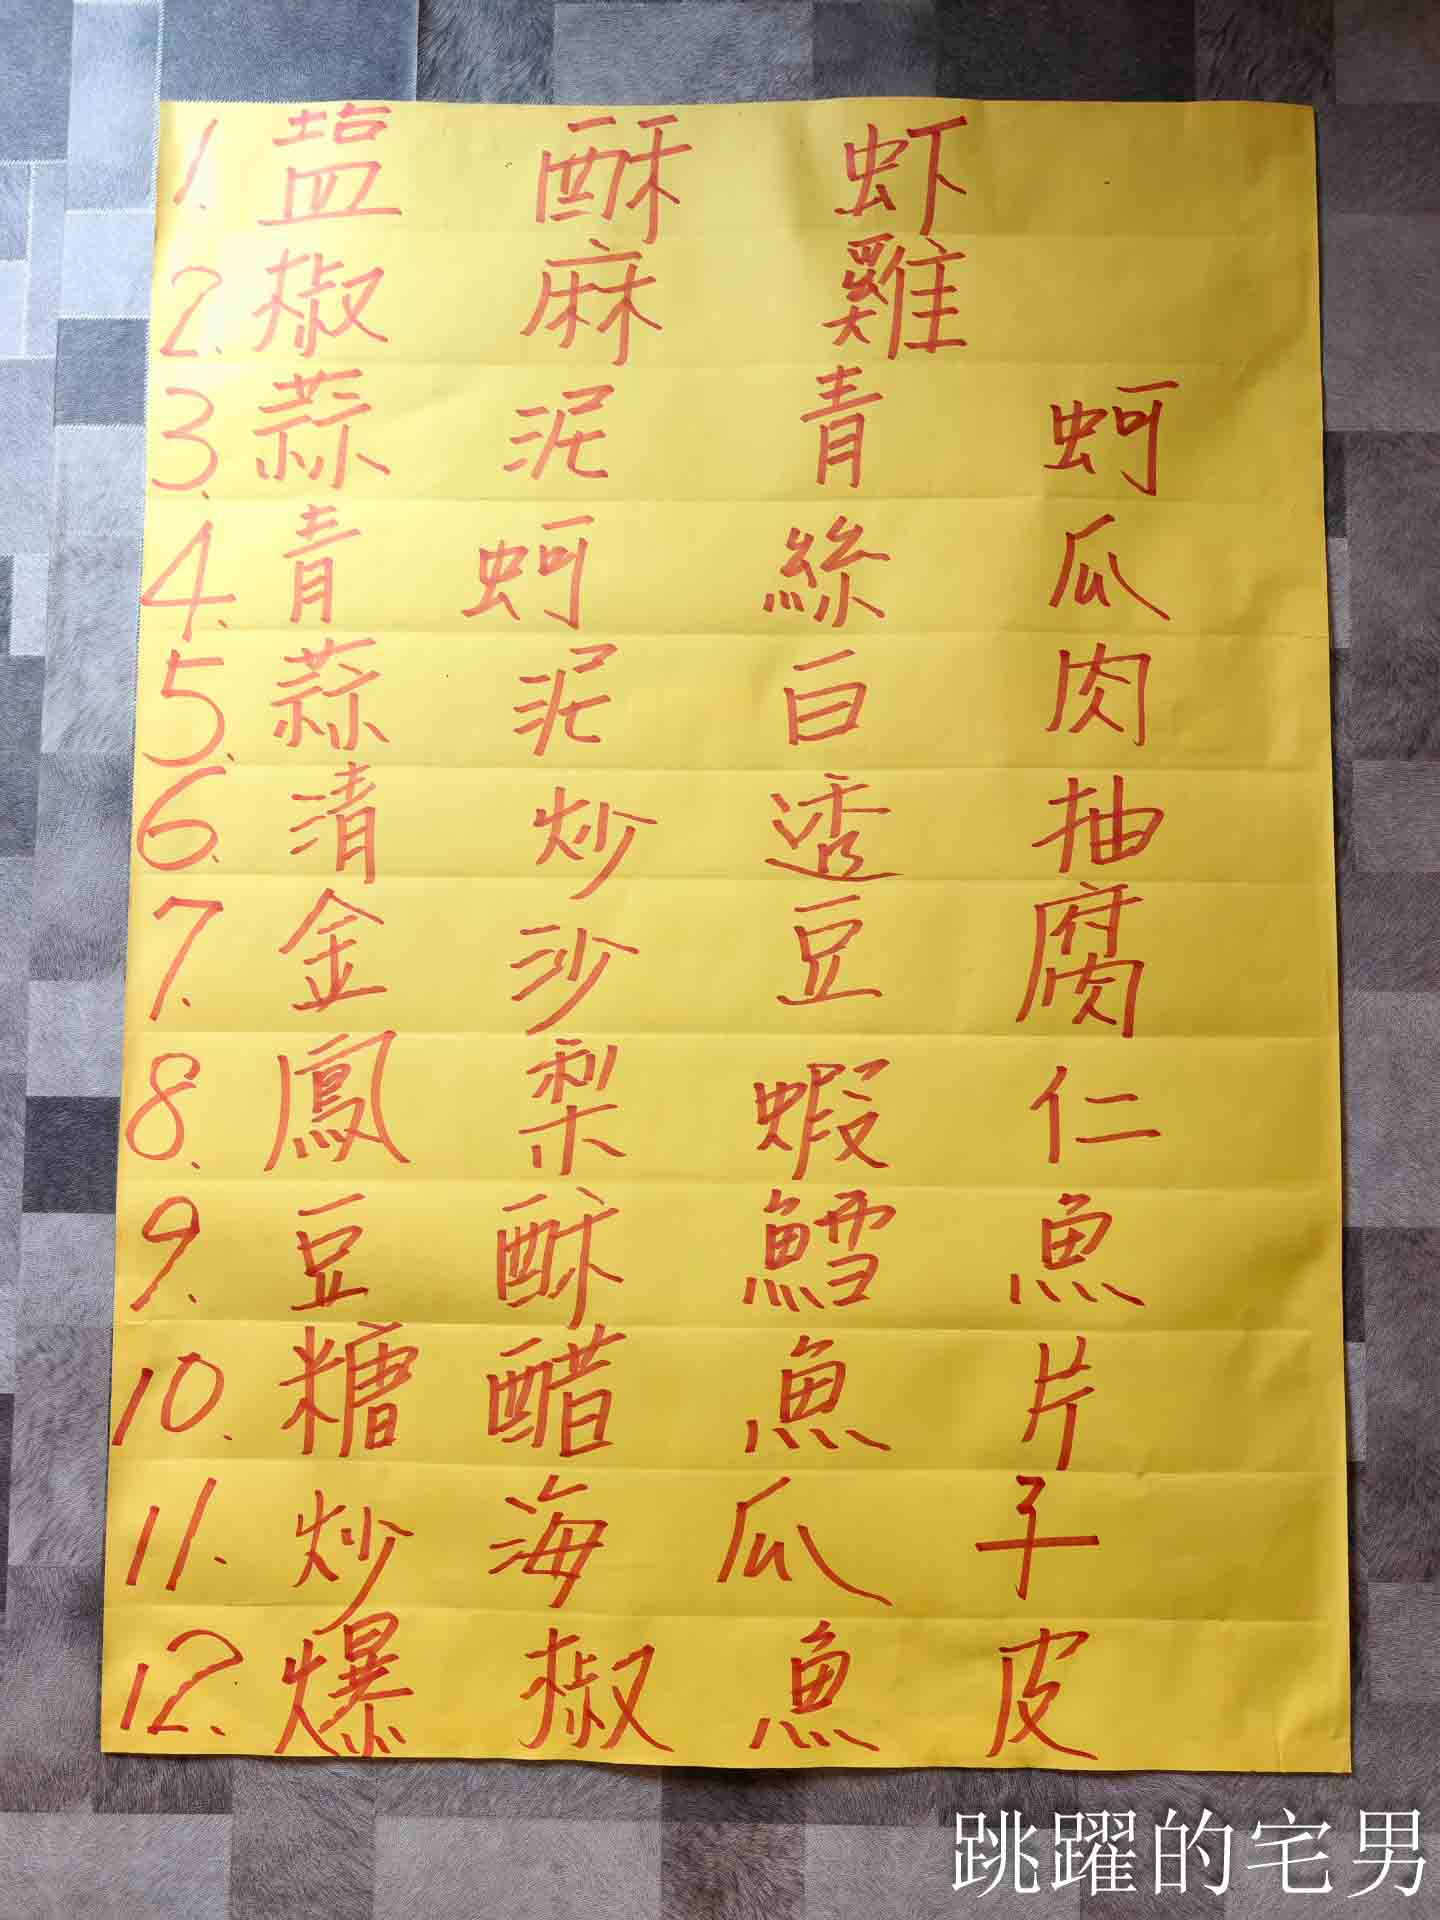 1. 塩酥虾
2. 椒麻雞
3. 蒜泥青蚵
4. 青蚵絲瓜
5. 蒜泥白肉
6. 清炒透抽
7. 金沙豆腐
8. 鳳梨蝦仁
9. 豆酥鱈魚
10. 糖醋魚片
11. 炒海瓜子
12. 爆椒魚皮
跳躍的宅男